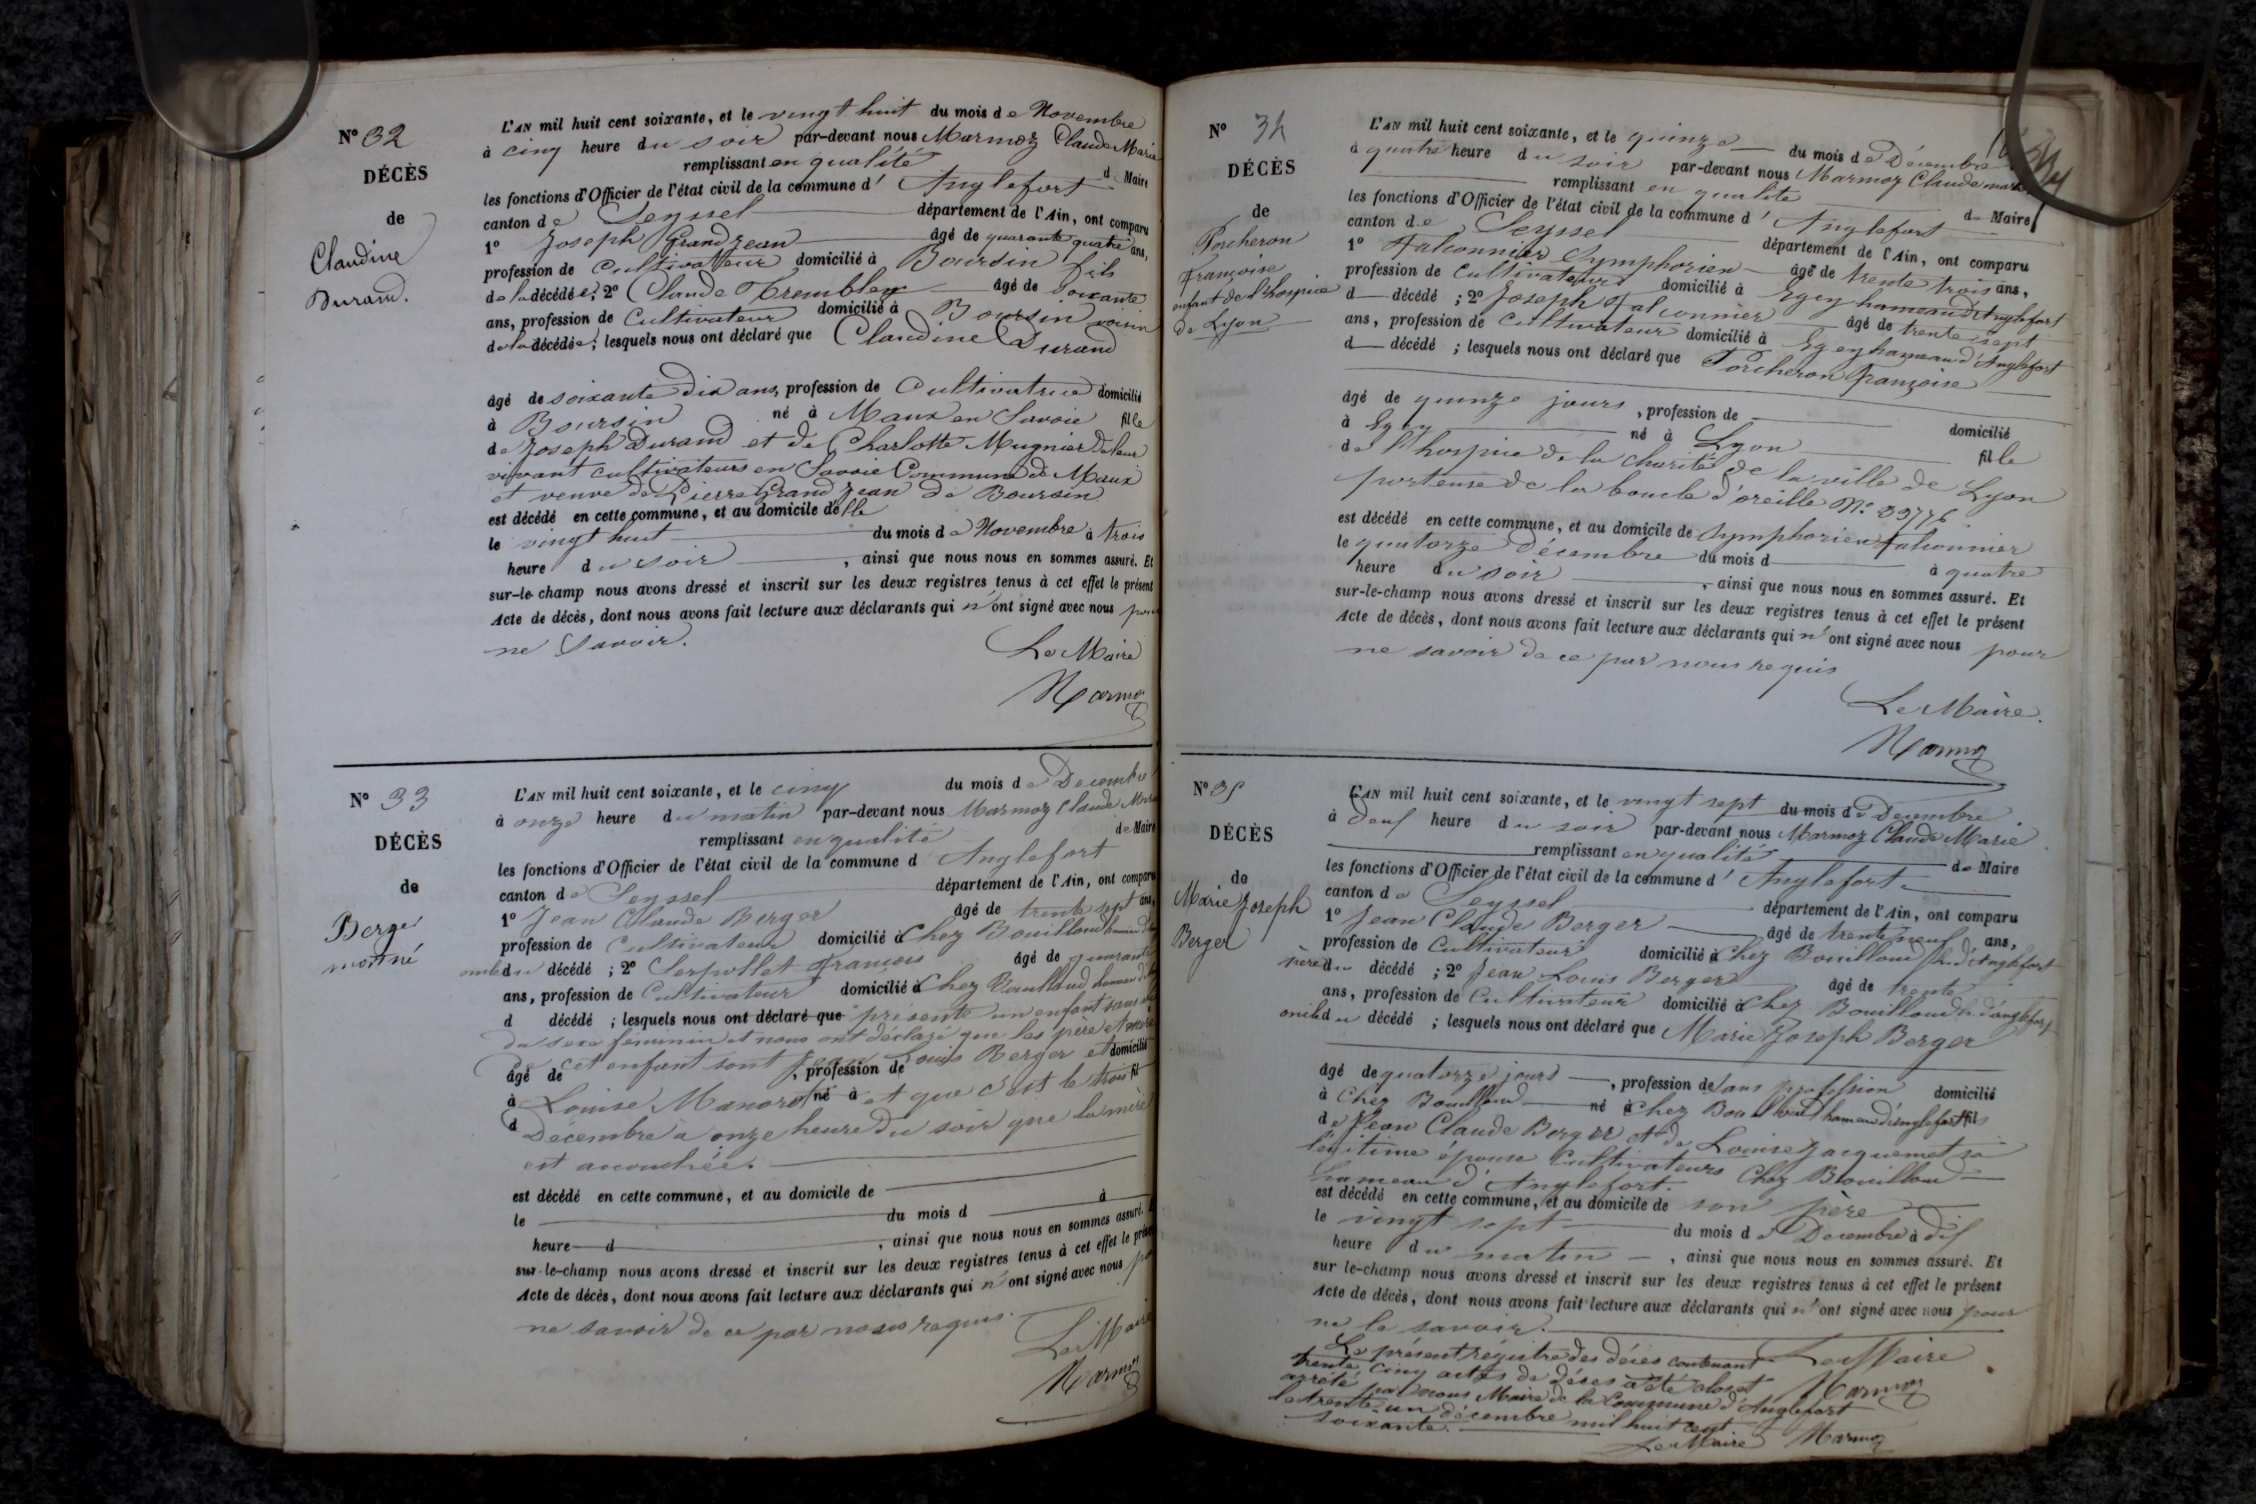 N° 32
DÉCÈS
de
Claudine
Durand.
L'AN mil huit cent soixante, et le vingt huit du mois de Novembre
à cinq heure du soir par-devant nous Marmoz Claude Marie
remplissant en qualité de Maire
les fonctions d'Officier de l'état civil de la commune d' Anglefort
canton de Seyssel département de l'Ain, ont comparu
1° Joseph Grandjean âgé de quarante quatre ans,
profession de Cultivateur domicilié à Boursin fils
de la décédée; 2° Claude Tremblay âgé de soixante
ans, profession de Cultivateur domicilié à Boursin voisin
de la décédée; lesquels nous ont déclaré que Claudine Durand
âgé de soixante dix ans, profession de Cultivatrice domicilié
à Boursin né à Maux en Savoie fille
de Joseph Durand et de Charlotte Mugnier de leur
vivant cultivateurs en Savoie Commune de Maux
et veuve de Pierre Grandjean de Boursin
est décédé en cette commune, et au domicile d'elle
le vingt huit du mois de Novembre à trois
heure du soir, ainsi que nous nous en sommes assuré. Et
sur-le-champ nous avons dressé et inscrit sur les deux registres tenus à cet effet le présent
Acte de décès, dont nous avons fait lecture aux déclarants qui n'ont signé avec nous pour
ne Savoir.
Le Maire
Marmoz
N° 33
DÉCÈS
de
Berger
mort né
L'AN mil huit cent soixante, et le cinq du mois de Decembre
à onze heure du matin par-devant nous Marmoz Claude Marie
remplissant en qualité de Maire
les fonctions d'Officier de l'état civil de la commune d Anglefort
canton de Seyssel département de l'Ain, ont comparu
1° Jean Claude Berger âgé de trente sept ans,
profession de Cultivateur domicilié à Chez Bouilloud hameau
oncle du décédé; 2° Serpollet François âgé de quarante
ans, profession de Cultivateur domicilié à Chez Bouilloud hameau
d décédé; lesquels nous ont déclaré que présenté un enfant sans vie
du sexe feminin et nous ont déclaré que les père et mère
de cet enfant sont Jean Louis Berger et domicilié
âgé de , profession de
à Louise né à et que c'est le trois fil
d Décembre à onze heure du soir que la mère
est accouchée.
est décédé en cette commune, et au domicile de
le du mois d à
heure d , ainsi que nous nous en sommes assuré.
sur-le-champ nous avons dressé et inscrit sur les deux registres tenus à cet effet le présent
Acte de décès, dont nous avons fait lecture aux déclarants qui n'ont signé avec nous pour
ne savoir de ce par nous requis.
Le Maire
Marmoz
N° 34
DÉCÈS
de
Porcheron
Françoise
enfant de l'hospice
de Lyon
L'AN mil huit cent soixante, et le quinze du mois de Décembre
à quatre heure du soir par-devant nous Marmoz Claude marie
remplissant en qualité de Maire
les fonctions d'Officier de l'état civil de la commune d' Anglefort
canton de Seyssel département de l'Ain, ont comparu
1° Falconnier Symphorien âgé de trente trois ans,
profession de Cultivateur domicilié à Egey hameau d'Anglefort
d décédé; 2° Joseph Falconnier âgé de trente sept
ans, profession de Cultivateur domicilié à Egey hameau d'Anglefort
d décédé; lesquels nous ont déclaré que Porcheron Françoise
âgé de quinze jours, profession de domicilié
à Egey né à Lyon fille
de l'hospice de la charité de la ville de Lyon
porteuse de la boucle d'oreille N°
est décédé en cette commune, et au domicile de Symphorien Falconnier
le quatorze Décembre du mois d à quatre
heure du soir, ainsi que nous nous en sommes assuré. Et
sur-le-champ nous avons dressé et inscrit sur les deux registres tenus à cet effet le présent
Acte de décès, dont nous avons fait lecture aux déclarants qui n'ont signé avec nous pour
ne savoir de ce par nous requis
Le Maire.
Marmoz
N° 35
DÉCÈS
de
Marie Joseph
Berger
L'AN mil huit cent soixante, et le vingt sept du mois de Decembre
à Deuf heure du soir par-devant nous Marmoz Claude Marie
remplissant en qualité de Maire
les fonctions d'Officier de l'état civil de la commune d' Anglefort
canton de Seyssel département de l'Ain, ont comparu
1° Jean Claude Berger âgé de trente neuf ans,
profession de Cultivateur domicilié à Chez Bouilloud h. d'Anglefort
père du décédé; 2° Jean Louis Berger âgé de trente
ans, profession de Cultivateur domicilié à Chez Bouilloud h. d'anglefort
oncle du décédé; lesquels nous ont déclaré que Marie Joseph Berger
âgé de quatorze jours, profession de sans profession domicilié
à Chez Bouilloud né à Chez Bouilloud hameau d'Anglefort fils
de Jean Claude Berger et de Louise Jacquemet sa
légitime épouse Cultivateurs Chez Bouilloud
hameau d'Anglefort.
est décédé en cette commune, et au domicile de son père
le vingt sept du mois de Decembre à dix
heure du matin, ainsi que nous nous en sommes assuré. Et
sur le-champ nous avons dressé et inscrit sur les deux registres tenus à cet effet le présent
Acte de décès, dont nous avons fait lecture aux déclarants qui n'ont signé avec nous pour
ne le savoir.
Le Maire
Marmoz
Le présent régistre des décès contenant
trente cinq actes de déces a été clos et
arrêté par nous Maire de la Commune d'Anglefort
le trente un décembre mil huit cent
soixante.
Le Maire Marmoz